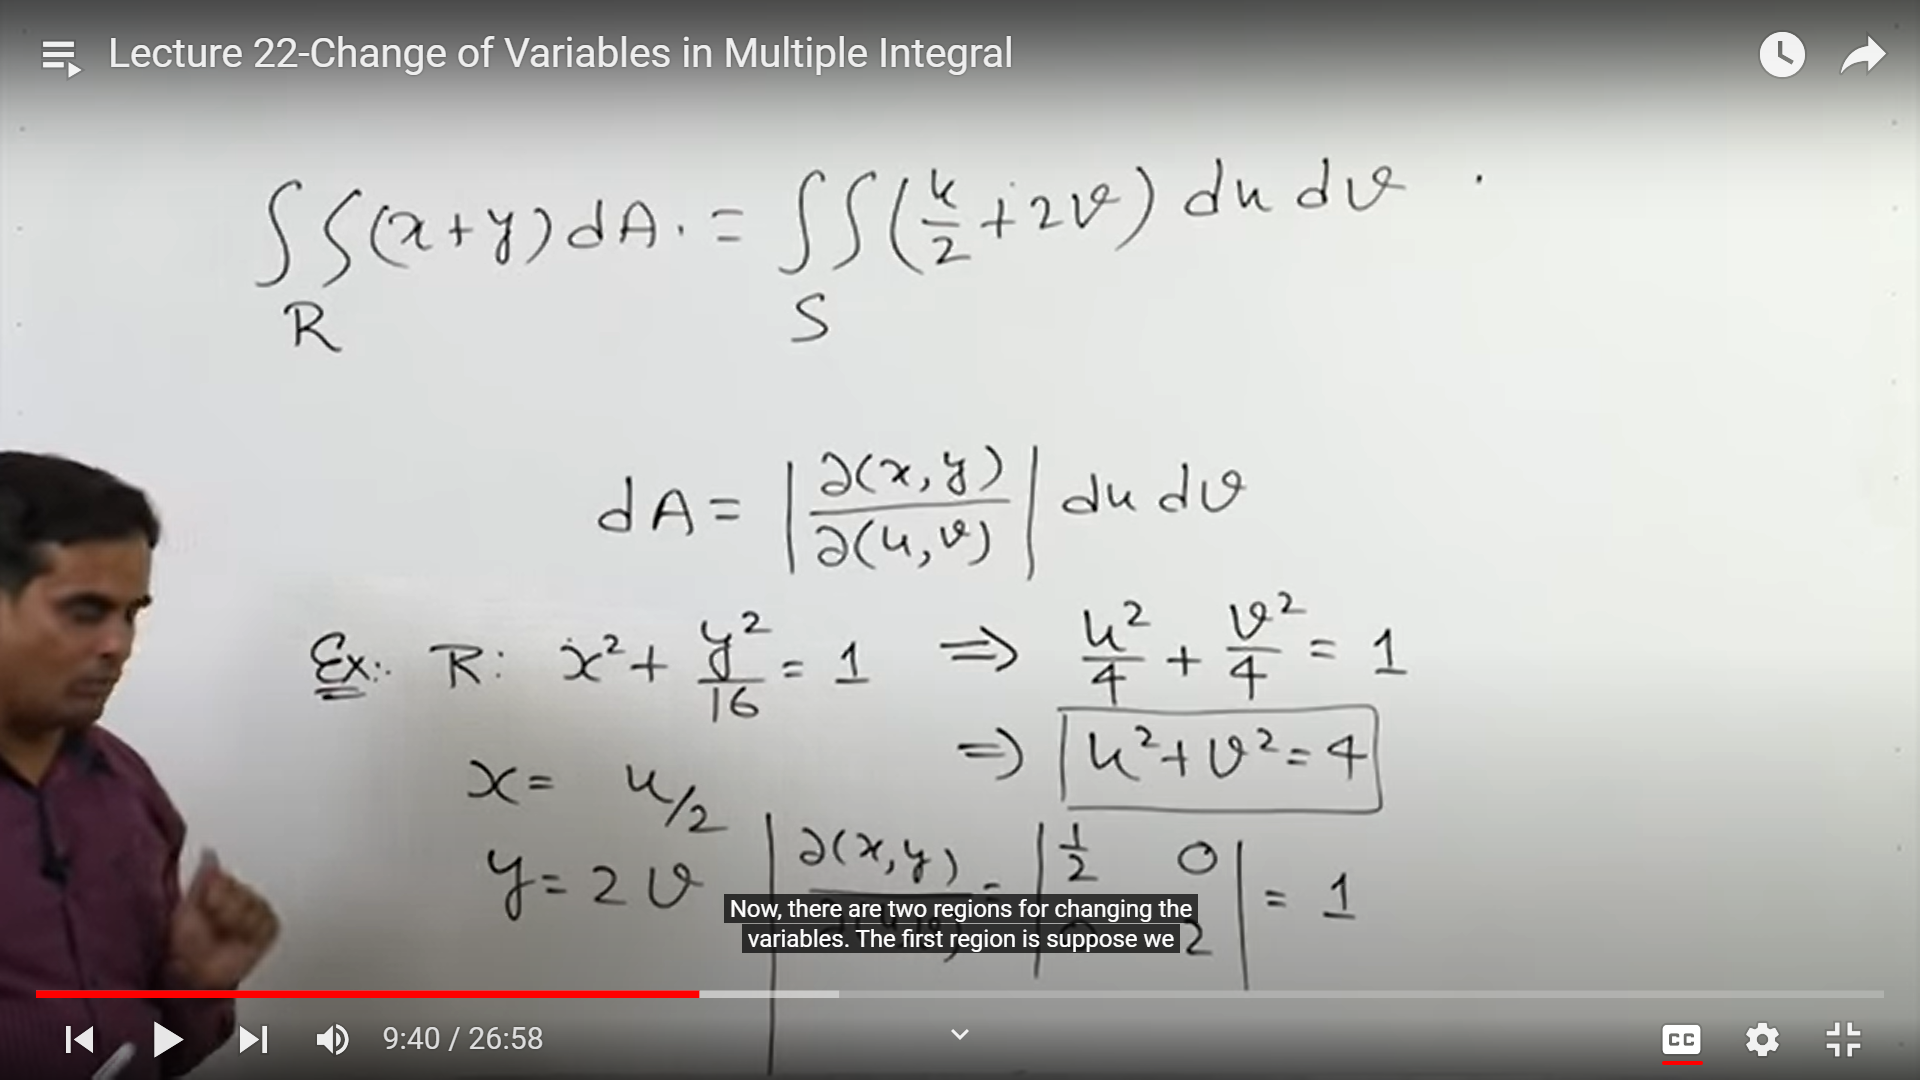 Lecture 22-Change of Variables in Multiple Integral
∫∫(x+y)dA. = ∫∫(u/2+2v) du dv
R S
dA = |∂(x,y)/∂(u,v)| du dv
Ex:. R: x²+y²/16=1 ⇒ u²/4+v²/4=1
x= u/2 ⇒ u²+v²=4
y=2v |∂(x,y) = |1/2 0
2| = 1
Now, there are two regions for changing the
variables. The first region is suppose we
9:40 / 26:58
CC